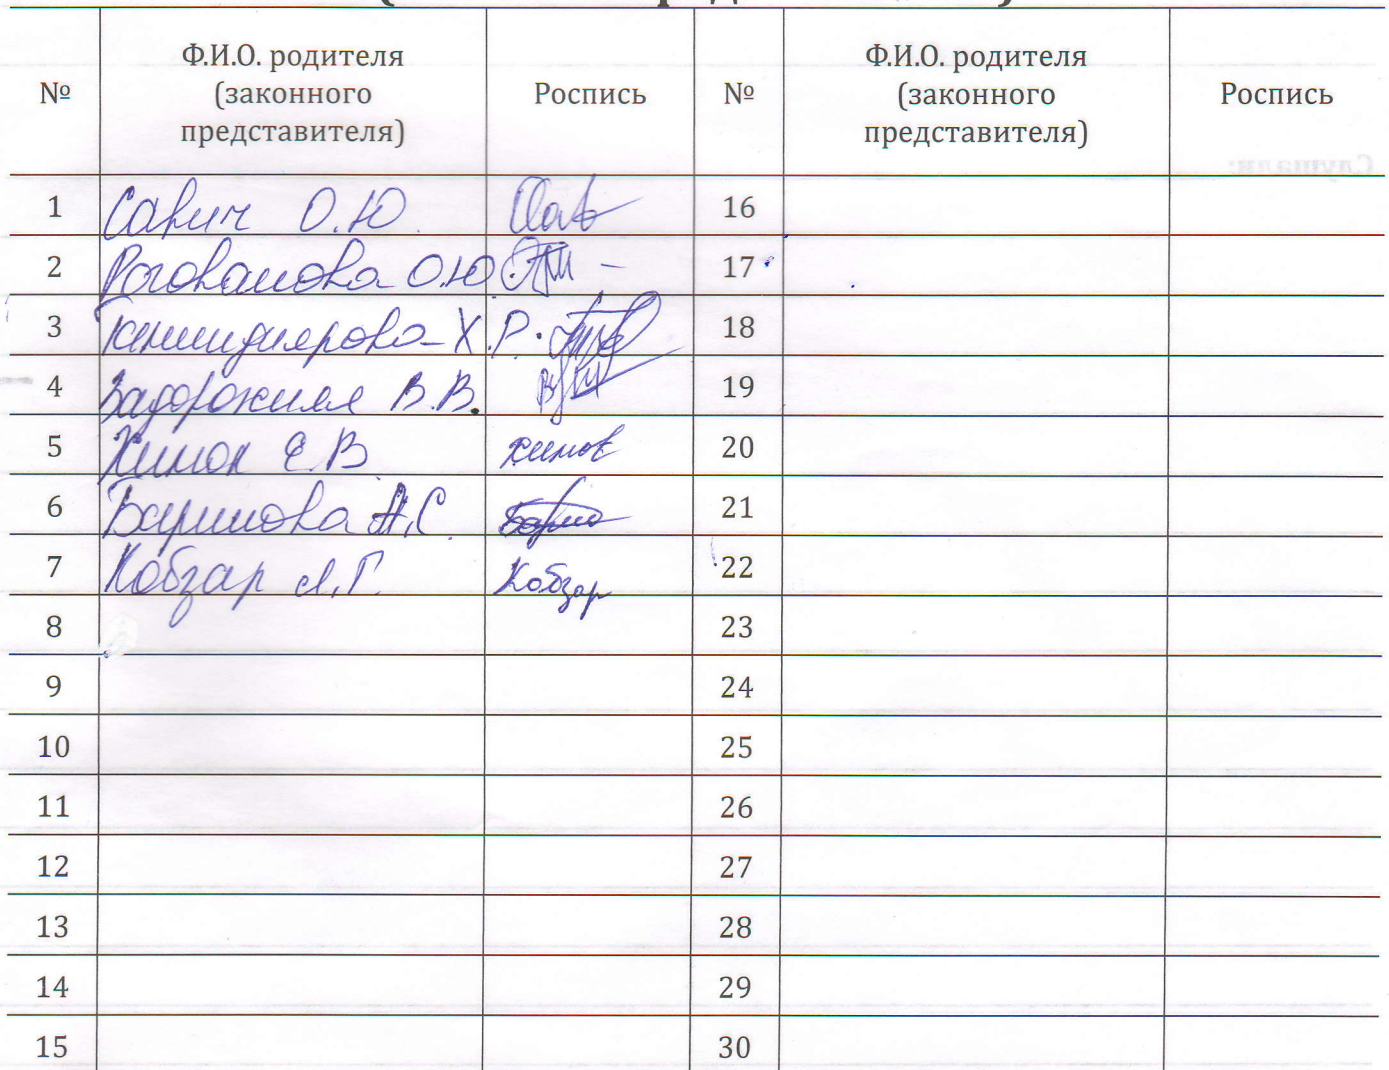 № Ф.И.О. родителя (законного представителя) Роспись № Ф.И.О. родителя (законного представителя) Роспись
1 Савич О.Ю. 16
2 О.Ю 17
3 Х.Р. 18
4 Задорожная В.В. 19
5 Климок Е.В. 20
6 Баринова А.С. 21
7 Кобзар Л.Г. Кобзар 22
8 23
9 24
10 25
11 26
12 27
13 28
14 29
15 30